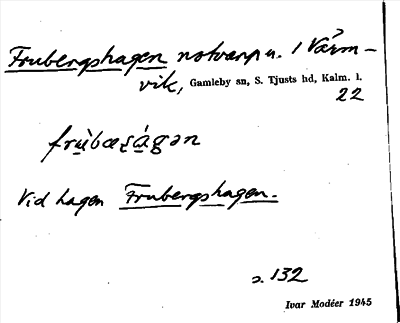 Frubergshagen notvarp n. i Värm-
vik, Gamleby sn, S. Tjusts hd, Kalm. l.
22
frùbæʂágən
Vid hagen Frubergshagen.
s. 132
Ivar Modéer 1945